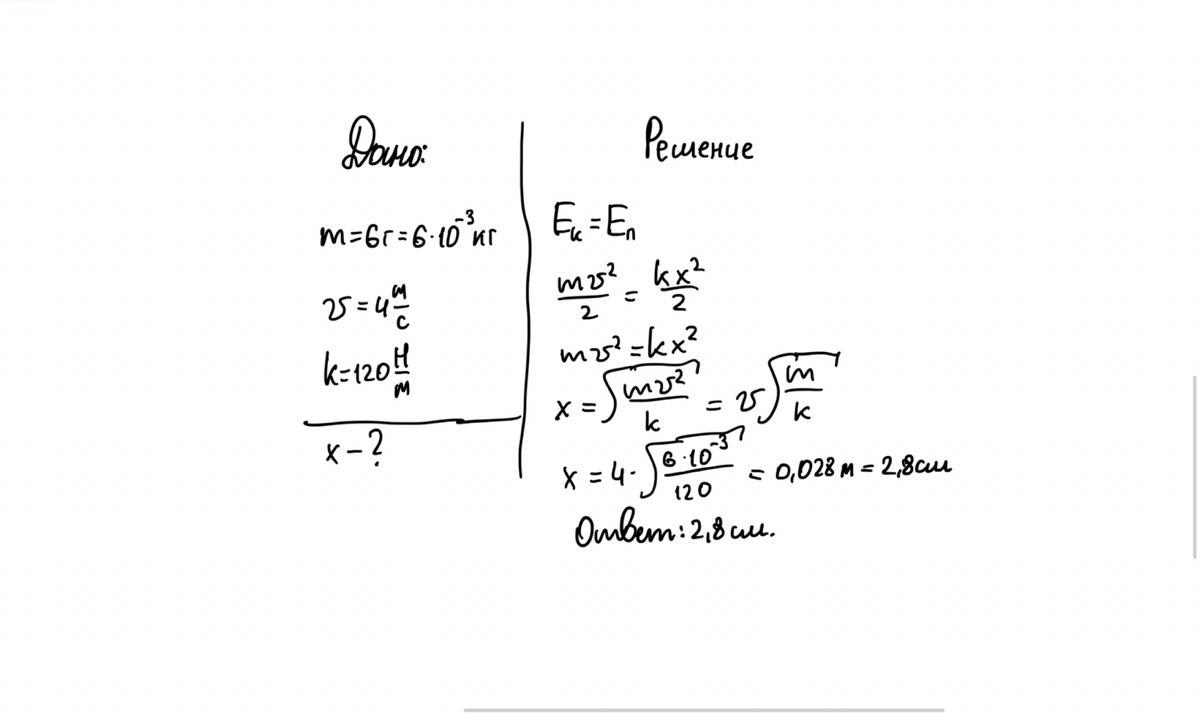 Дано:
m=6г=6·10⁻³кг
v=4 м/с
k=120 Н/м
x-?
Решение
Eк=Eп
mv²/2 = kx²/2
mv²=kx²
x=√(mv²/k) = v√(m/k)
x=4·√(6·10⁻³/120) = 0,028 м = 2,8см
Ответ: 2,8 см.